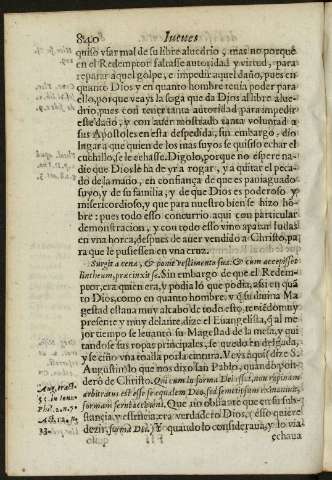 840 Iueues
quiso vsar mal de su libre aluedrio, mas no porque
en el Redemptor faltasse autoridad y virtud, para
reparar aquel golpe, e impedir aquel daño, pues en
quanto Dios y en quanto hombre tenia poder para
ello, porque veays la soga que da Dios al libre alue-
drio, pues con tener tanta autoridad para impedir
este daño, y con auer mostrado tanta voluntad a
sus Apostoles en esta despedida, sin embargo, dio
lugar a que quien de los mas suyos se quiso echar el
cuchillo, se le echasse. Digolo, porque no espere na-
die que Dios le ha de yr a rogar, y a quitar el peca-
do de la mano, en confiança de que es paniaguado
suyo, y de su familia, y de que Dios es poderoso y
misericordioso, y que para nuestro bien se hizo hõ-
bre: pues todo esso concurrio aqui con particular
demonstracion, y con todo esso vino a parar Iudas
en vna horca, despues de auer vendido a Christo, pa
ra que le pusiessen en vna cruz.
Surgit a cena, & ponit vestimenta sua. & cum accepisset
lintheum, præcinxit se. Sin embargo de que el Redem-
ptor, era quien era, y podia lo que podia, assi en quã
to Dios, como en quanto hombre, y q̃ su diuina Ma
gestad estaua muy al cabo de todo esto, teniedolo muy
presente y muy delante dize el Euangelista, q̃ al me
jor tiempo se leuantò su Magestad de la mesa, y qui
tandose sus ropas principales, se quedo en delgada,
y se ciñò vna toalla por la cintura. Veys aqui dize S.
Augustin lo que nos dixo san Pablo, quando põn-
derò de Christo. Qui cum in forma Dei esset, non rapinam
arbitratus est esse se æqualem Deo, sed semetipsum exinaniuit,
formam serui accipiens. Que no obstante que en su subs-
tancia, y essencia era verdadero Dios, (esso quiere
dezir, forma Dei,) Y quando lo consideraua, y lo via
echaua
Aug. tract.
55. in Ioan.
Phil. 2. n. 7.